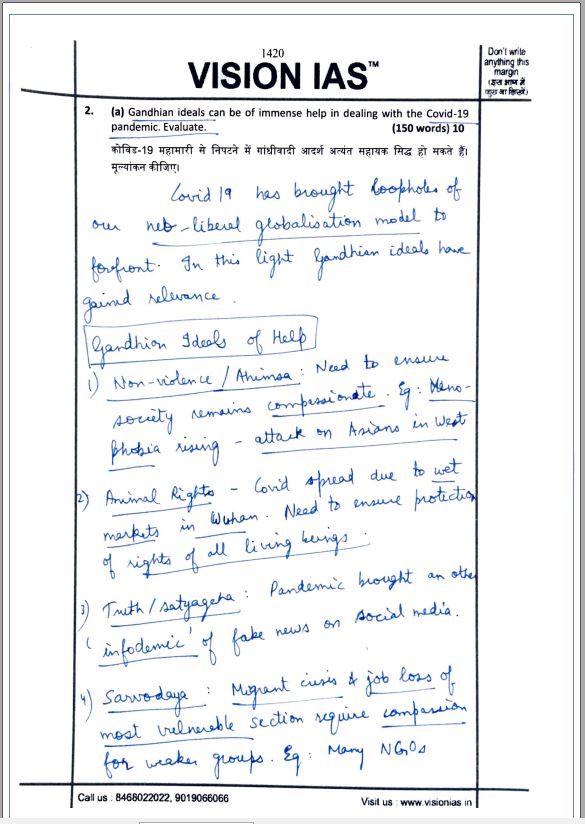 1420
VISION IAS™
Don't write
anything this
margin
(इस भाग में
कुछ ना लिखें)
2. (a) Gandhian ideals can be of immense help in dealing with the Covid-19
pandemic. Evaluate. (150 words) 10
कोविड-19 महामारी से निपटने में गांधीवादी आदर्श अत्यंत सहायक सिद्ध हो सकते हैं।
मूल्यांकन कीजिए।
Covid 19 has brought loopholes of
our neo-liberal globalisation model to
forefront. In this light Gandhian ideals have
gained relevance.
Gandhian Ideals of Help
1) Non-violence / Ahimsa : Need to ensure
society remains compassionate. Eg: Xeno-
phobia rising - attack on Asians in West
2) Animal Rights - Covid spread due to wet
markets in Wuhan. Need to ensure protection
of rights of all living beings.
3) Truth / satyagraha : Pandemic brought an other
'infodemic' of fake news on social media.
4) Sarvodaya : Migrant crisis & job loss of
most vulnerable section require compassion
for weaker groups. Eg: Many NGOs
Call us : 8468022022, 9019066066
Visit us : www.visionias.in